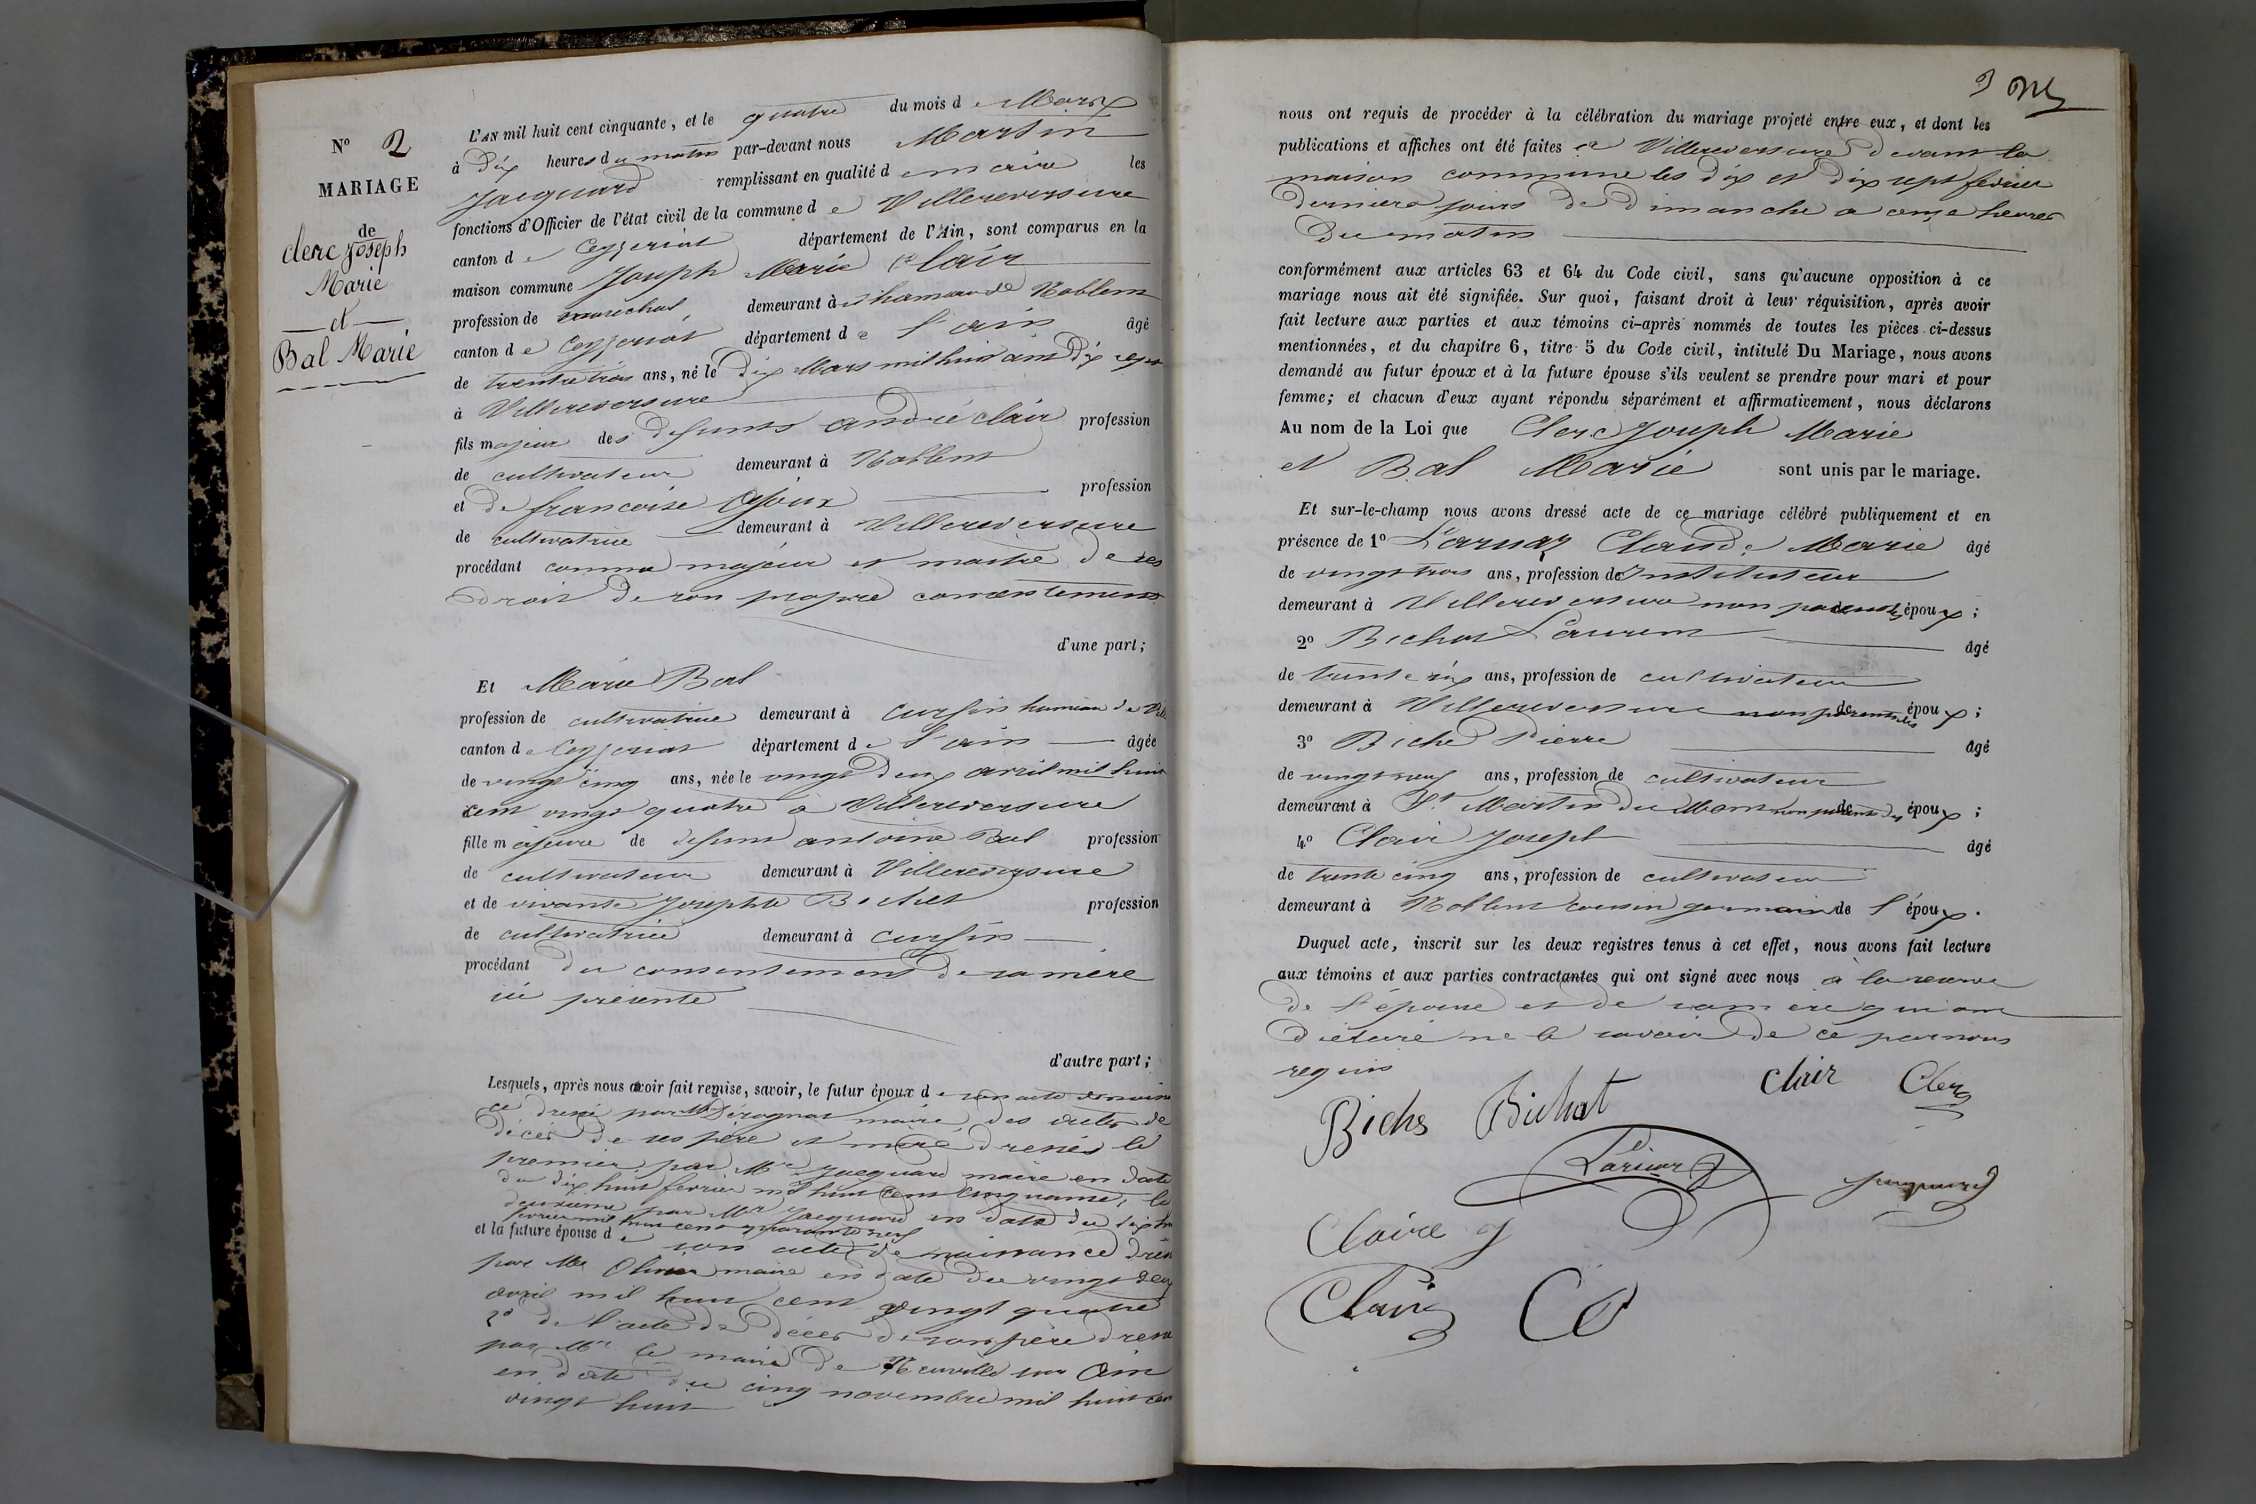 N° 2
MARIAGE
de
Clerc Joseph
Marie
et
Bal Marie
L'AN mil huit cent cinquante, et le quatre du mois de Mars
à dix heures du matin par-devant nous Martin
Jacquard remplissant en qualité de maire les
fonctions d'Officier de l'état civil de la commune de Villereversure
canton de Ceyzeriat département de l'Ain, sont comparus en la
maison commune Joseph Marie Clair
profession de marechal demeurant à hamau de Noblens
canton de Ceyzeriat département de l'ain âgé
de trente trois ans, né le dix Mars mil huit cent dix sept
à Villereversure
fils majeur des defunts andré Clair profession
de cultivateur demeurant à Noblens
et de francoise profession
de cultivatrice demeurant à Villereversure
procédant comme majeur et maitre de ses
droit de son propre consentement
d'une part;
Et Marie Bal
profession de cultivatrice demeurant à Cursin hamau de Vill
canton de Ceyzeriat département de l'ain âgée
de vingt cinq ans, née le vingt deux avril mil huit
cent vingt quatre a Villereversure
fille majeure de defunt antoine Bal profession
de cultivateur demeurant à Villereversure
et de vivante Josephte Bichet profession
de cultivatrice demeurant à Cursin
procédant du consentement de sa mère
ici présente
d'autre part;
Lesquels, après nous avoir fait remise, savoir, le futur époux de son acte de naissan
ce dressé par Mr maire, des actes de
décès de ses père et mère dressés le
premier par Mr Jacquard maire en date
du dix huit fevrier mil huit cent cinquante, le
deuxieme par Mr Jacquard en date du
fevrier mil huit cent quarante neuf
et la future épouse de son acte de naissance dressé
par Mr maire en date du vingt deux
avril mil huit cent vingt quatre
2° de l'acte de décès de son père dressé
par Mr le maire de Neuville sur Ain
en date du cinq novembre mil huit cent
vingt huit
3
nous ont requis de procéder à la célébration du mariage projeté entre eux, et dont les
publications et affiches ont été faites a Villereversure devant la
maison commune les dix et dix sept fevrier
derniers jours de dimanche a onze heures
du matin
conformément aux articles 63 et 64 du Code civil, sans qu'aucune opposition à ce
mariage nous ait été signifiée. Sur quoi, faisant droit à leur réquisition, après avoir
fait lecture aux parties et aux témoins ci-après nommés de toutes les pièces ci-dessus
mentionnées, et du chapitre 6, titre 5 du Code civil, intitulé Du Mariage, nous avons
demandé au futur époux et à la future épouse s'ils veulent se prendre pour mari et pour
femme; et chacun d'eux ayant répondu séparément et affirmativement, nous déclarons
Au nom de la Loi que Clerc Joseph Marie
et Bal Marie sont unis par le mariage.
Et sur-le-champ nous avons dressé acte de ce mariage célébré publiquement et en
présence de 1° Larnaz Claude Marie âgé
de vingt trois ans, profession de Instituteur
demeurant à Villereversure non parent des époux;
2° Bichat Laurent âgé
de trente six ans, profession de cultivateur
demeurant à Villereversure non parent des époux;
3° Biche Pierre âgé
de vingt neuf ans, profession de cultivateur
demeurant à St Martin du Mont non parent des époux;
4° Clair Joseph âgé
de trente cinq ans, profession de cultivateur
demeurant à Noblens cousin germain de l'époux.
Duquel acte, inscrit sur les deux registres tenus à cet effet, nous avons fait lecture
aux témoins et aux parties contractantes qui ont signé avec nous à la reserve
de l'épouse et de sa mere qui ont
déclaré ne le savoir de ce par nous
requis
Biche Bichat Clair Clerc
Larnaz Jacquard
Claire J
Clair